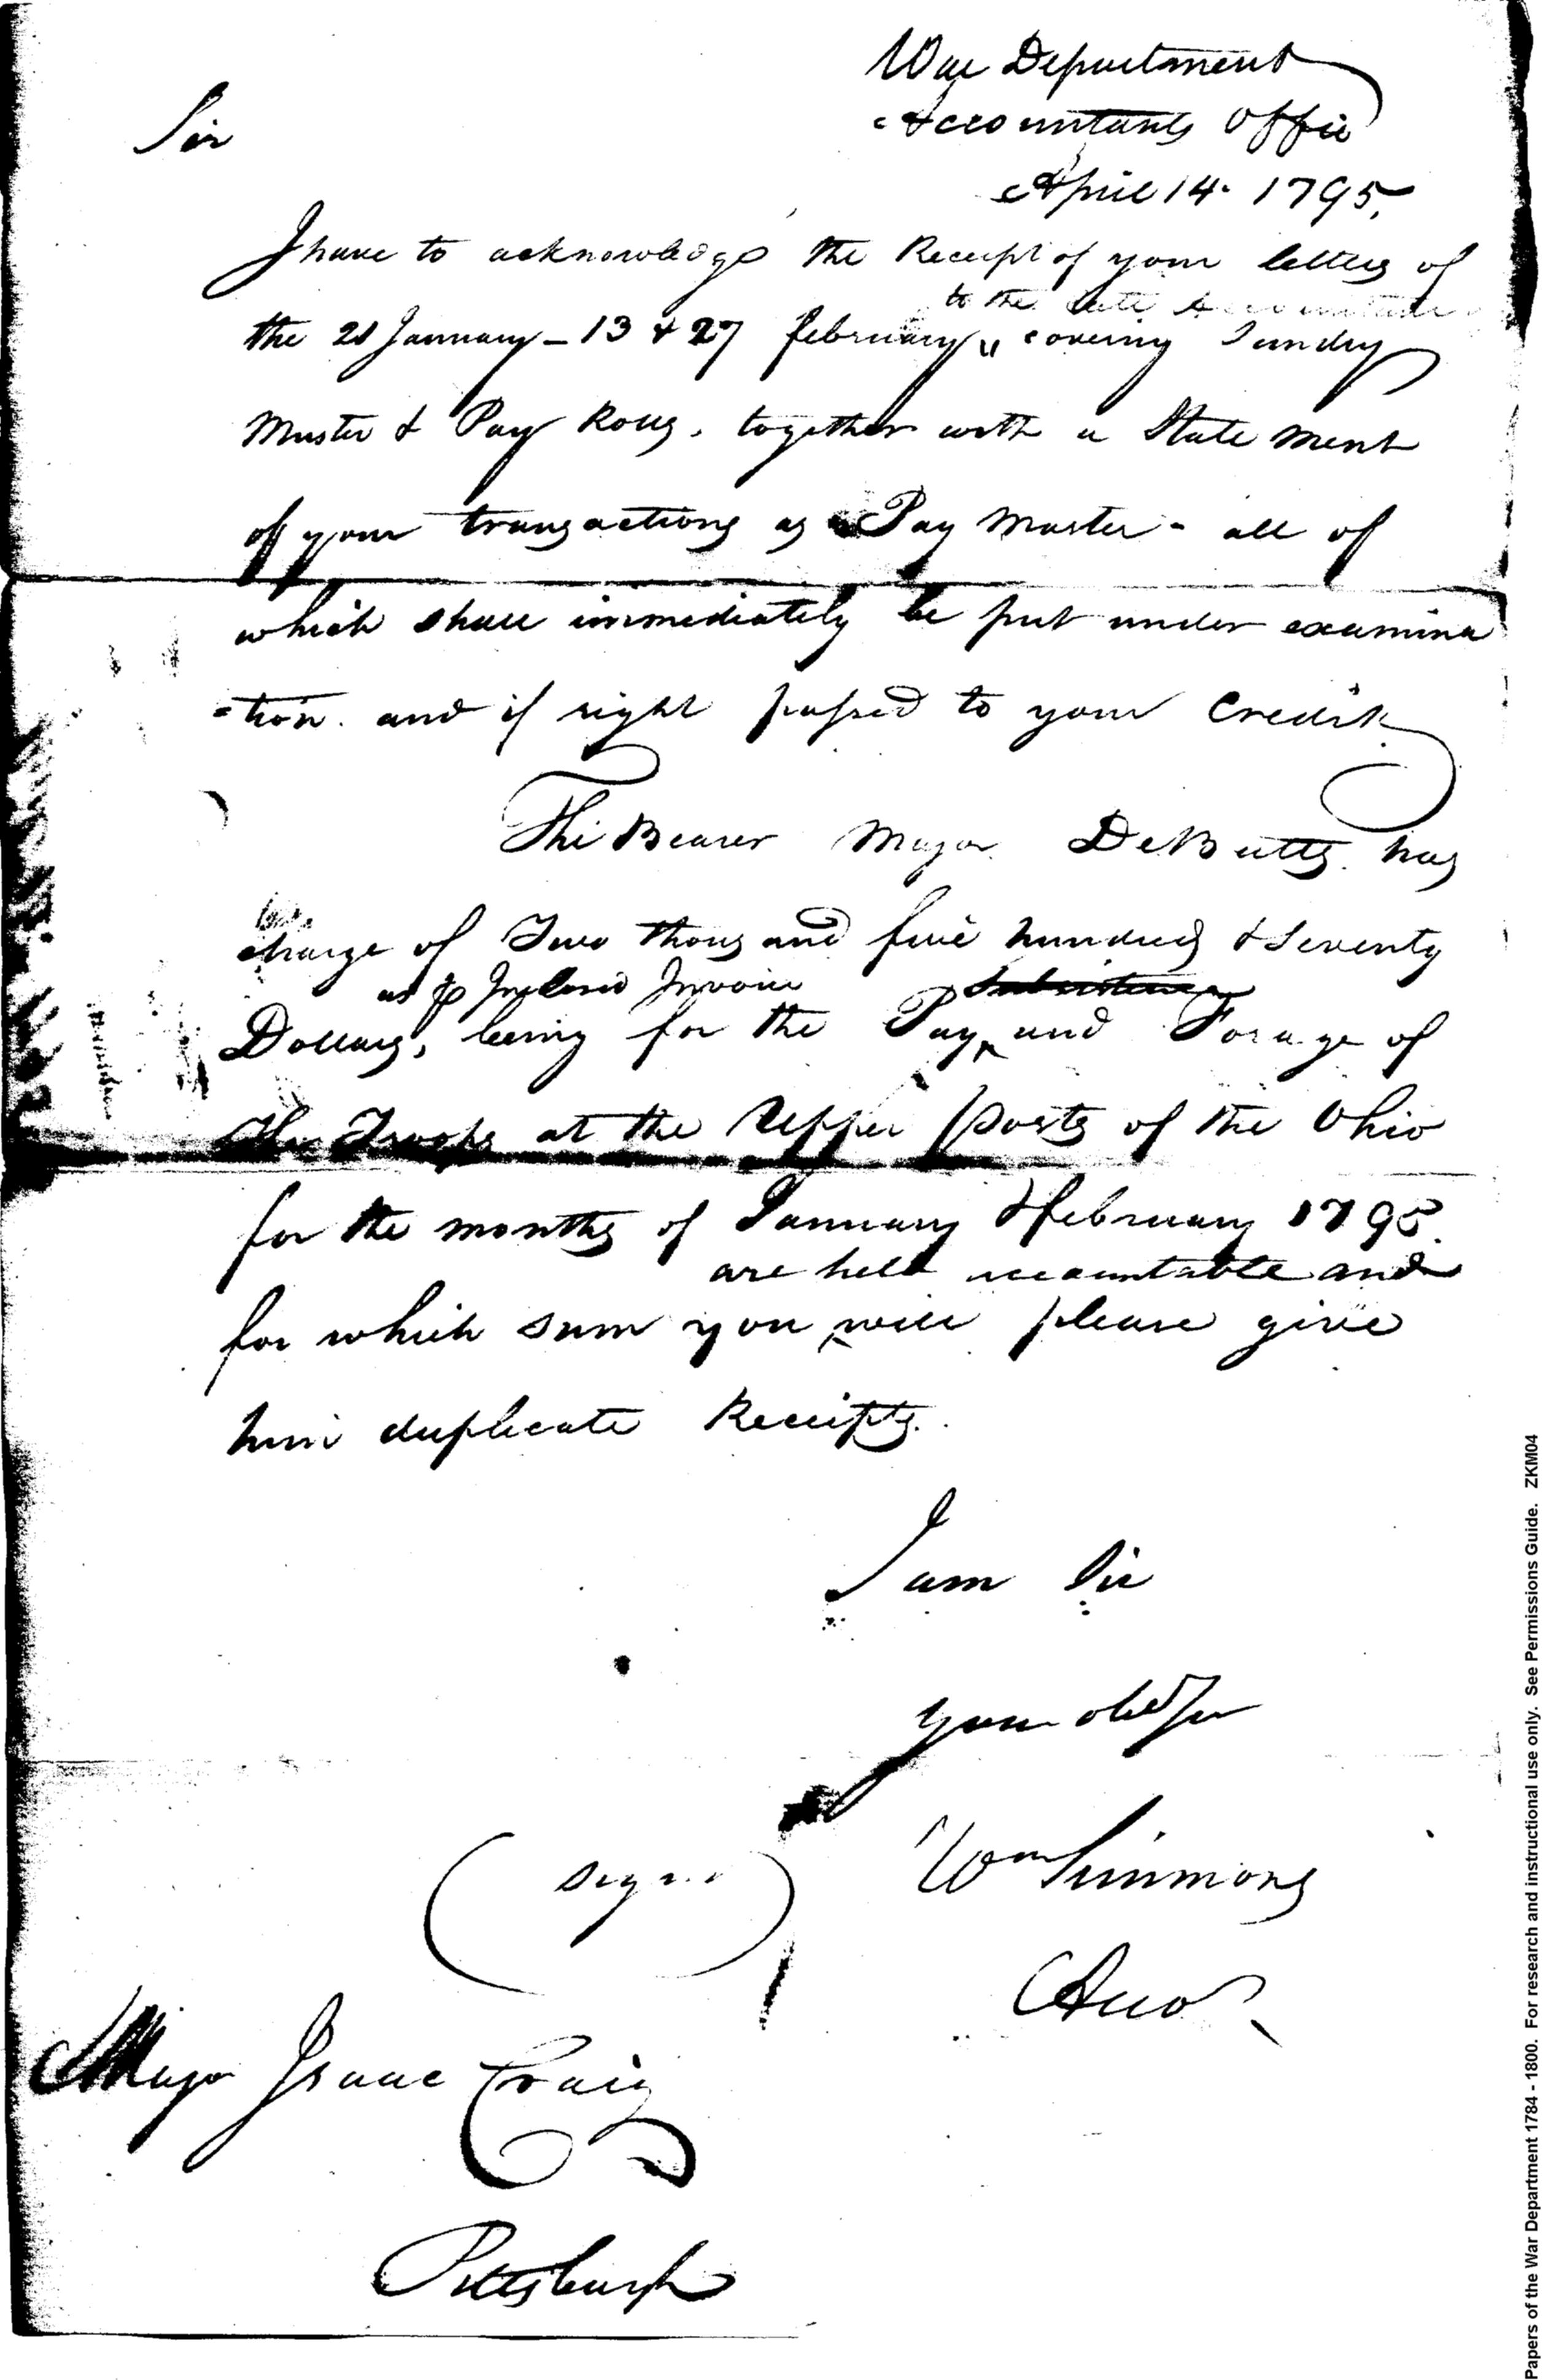 War Department
Accountants Office
April 14. 1795.
Sir
I have to acknowledge the Receipt of your letters of
to the late Accountant
the 21 January - 13 & 27 february, covering Sundry
Muster & Pay Rolls, together with a State ment
of your transactions as Pay Master - all of
which shall immediately be put under examina
=tion. and if right passed to your Credit
The Bearer Major DeButts. has
charge of Two thousand five hundred & Seventy
as ⅌ Inclosed Invoice Subsistence
Dollars, being for the Pay, and Forage of
the Troops at the Upper Posts of the Ohio
for the months of January & february 1795.
are held accountable and
for which sum you will please give
him duplicate Receipts.
I am Sir
your obed Ser
(signd) Wm Simmons
Acco
Major Isaac Craig
Pittsburgh
Papers of the War Department 1784 - 1800. For research and instructional use only. See Permissions Guide. ZKM04